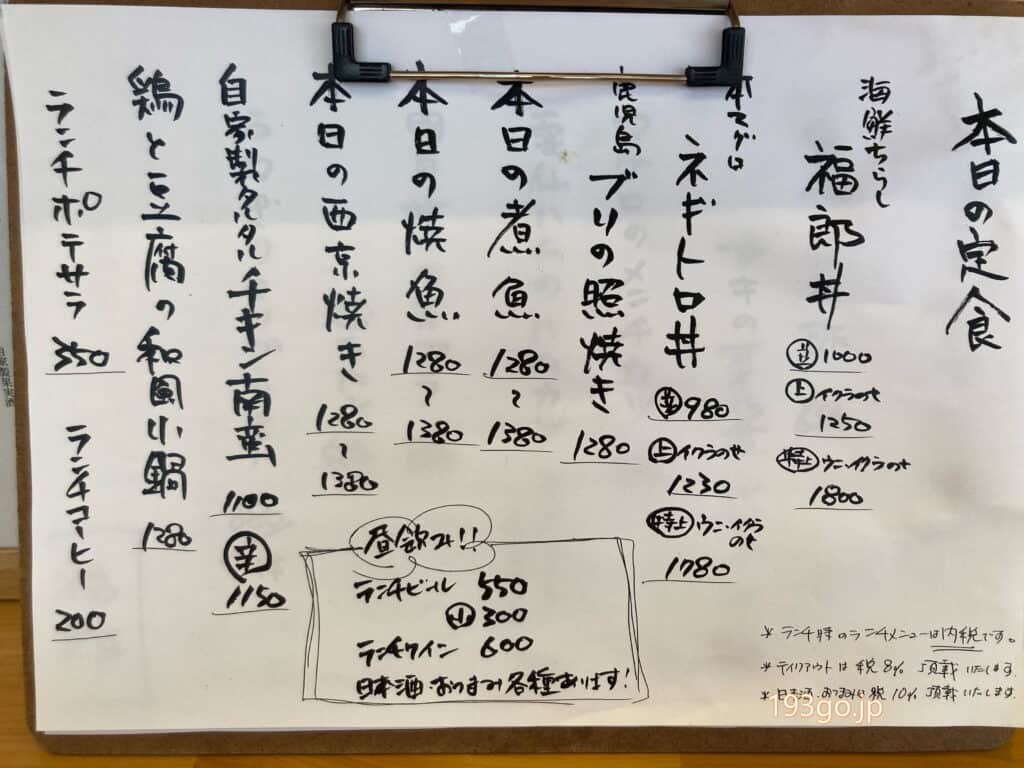 本日の定食
海鮮ちらし
福郎丼
並 1000
上 イクラのせ
1250
特上 ウニ・イクラのせ
1800
本マグロ
ネギトロ丼
並 980
上 イクラのせ
1230
特上 ウニ・イクラ
のせ
1780
鹿児島
ブリの照焼き
1280
本日の煮魚
1280
〜
1380
本日の焼魚
1280
〜
1380
本日の西京焼き
1280
〜
1380
自家製タルタルチキン南蛮
1100
辛
1150
鶏と豆腐の和風小鍋
1280
ランチポテサラ
350
ランチコーヒー
200
昼飲み!!
ランチビール 550
小 300
ランチワイン 600
日本酒・おつまみ各種あります!
* ランチ時のランチメニューは内税です。
* テイクアウトは税8% 頂戴いたします
* 日本酒、おつまみは税10% 頂戴いたします
193go.jp
自家製果実酒